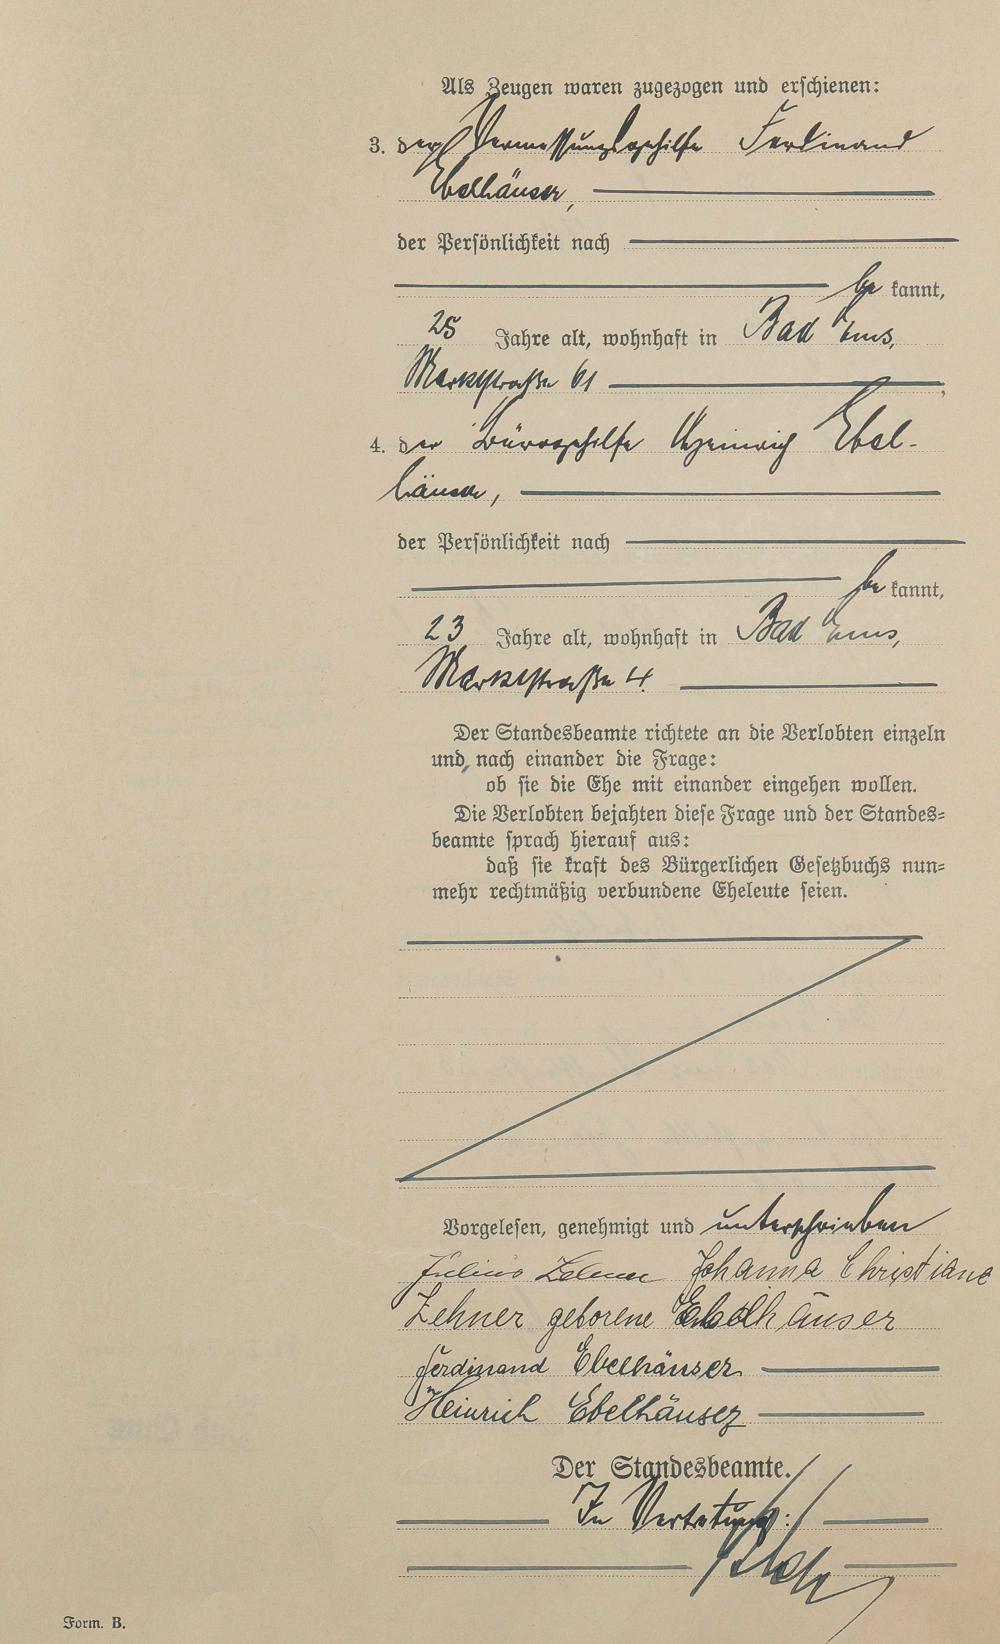 Als Zeugen waren zugezogen und erschienen:
3. der Vermessungsgehilfe Ferdinand
Ebelhäuser,
der Persönlichkeit nach
be kannt,
25 Jahre alt, wohnhaft in Bad Ems,
Marktstraße 61
4. der Bürogehilfe Heinrich Ebel-
häuser,
der Persönlichkeit nach
be kannt,
23 Jahre alt, wohnhaft in Bad Ems,
Marktstraße 4.
Der Standesbeamte richtete an die Verlobten einzeln
und nach einander die Frage:
ob sie die Ehe mit einander eingehen wollen.
Die Verlobten bejahten diese Frage und der Standes=
beamte sprach hierauf aus:
daß sie kraft des Bürgerlichen Gesetzbuchs nun=
mehr rechtmäßig verbundene Eheleute seien.
Vorgelesen, genehmigt und unterschrieben
Julius Zehner Johanna Christiane
Zehner geborene Ebelhäuser
Ferdinand Ebelhäuser
Heinrich Ebelhäuser
Der Standesbeamte.
In Vertretung:
Form. B.